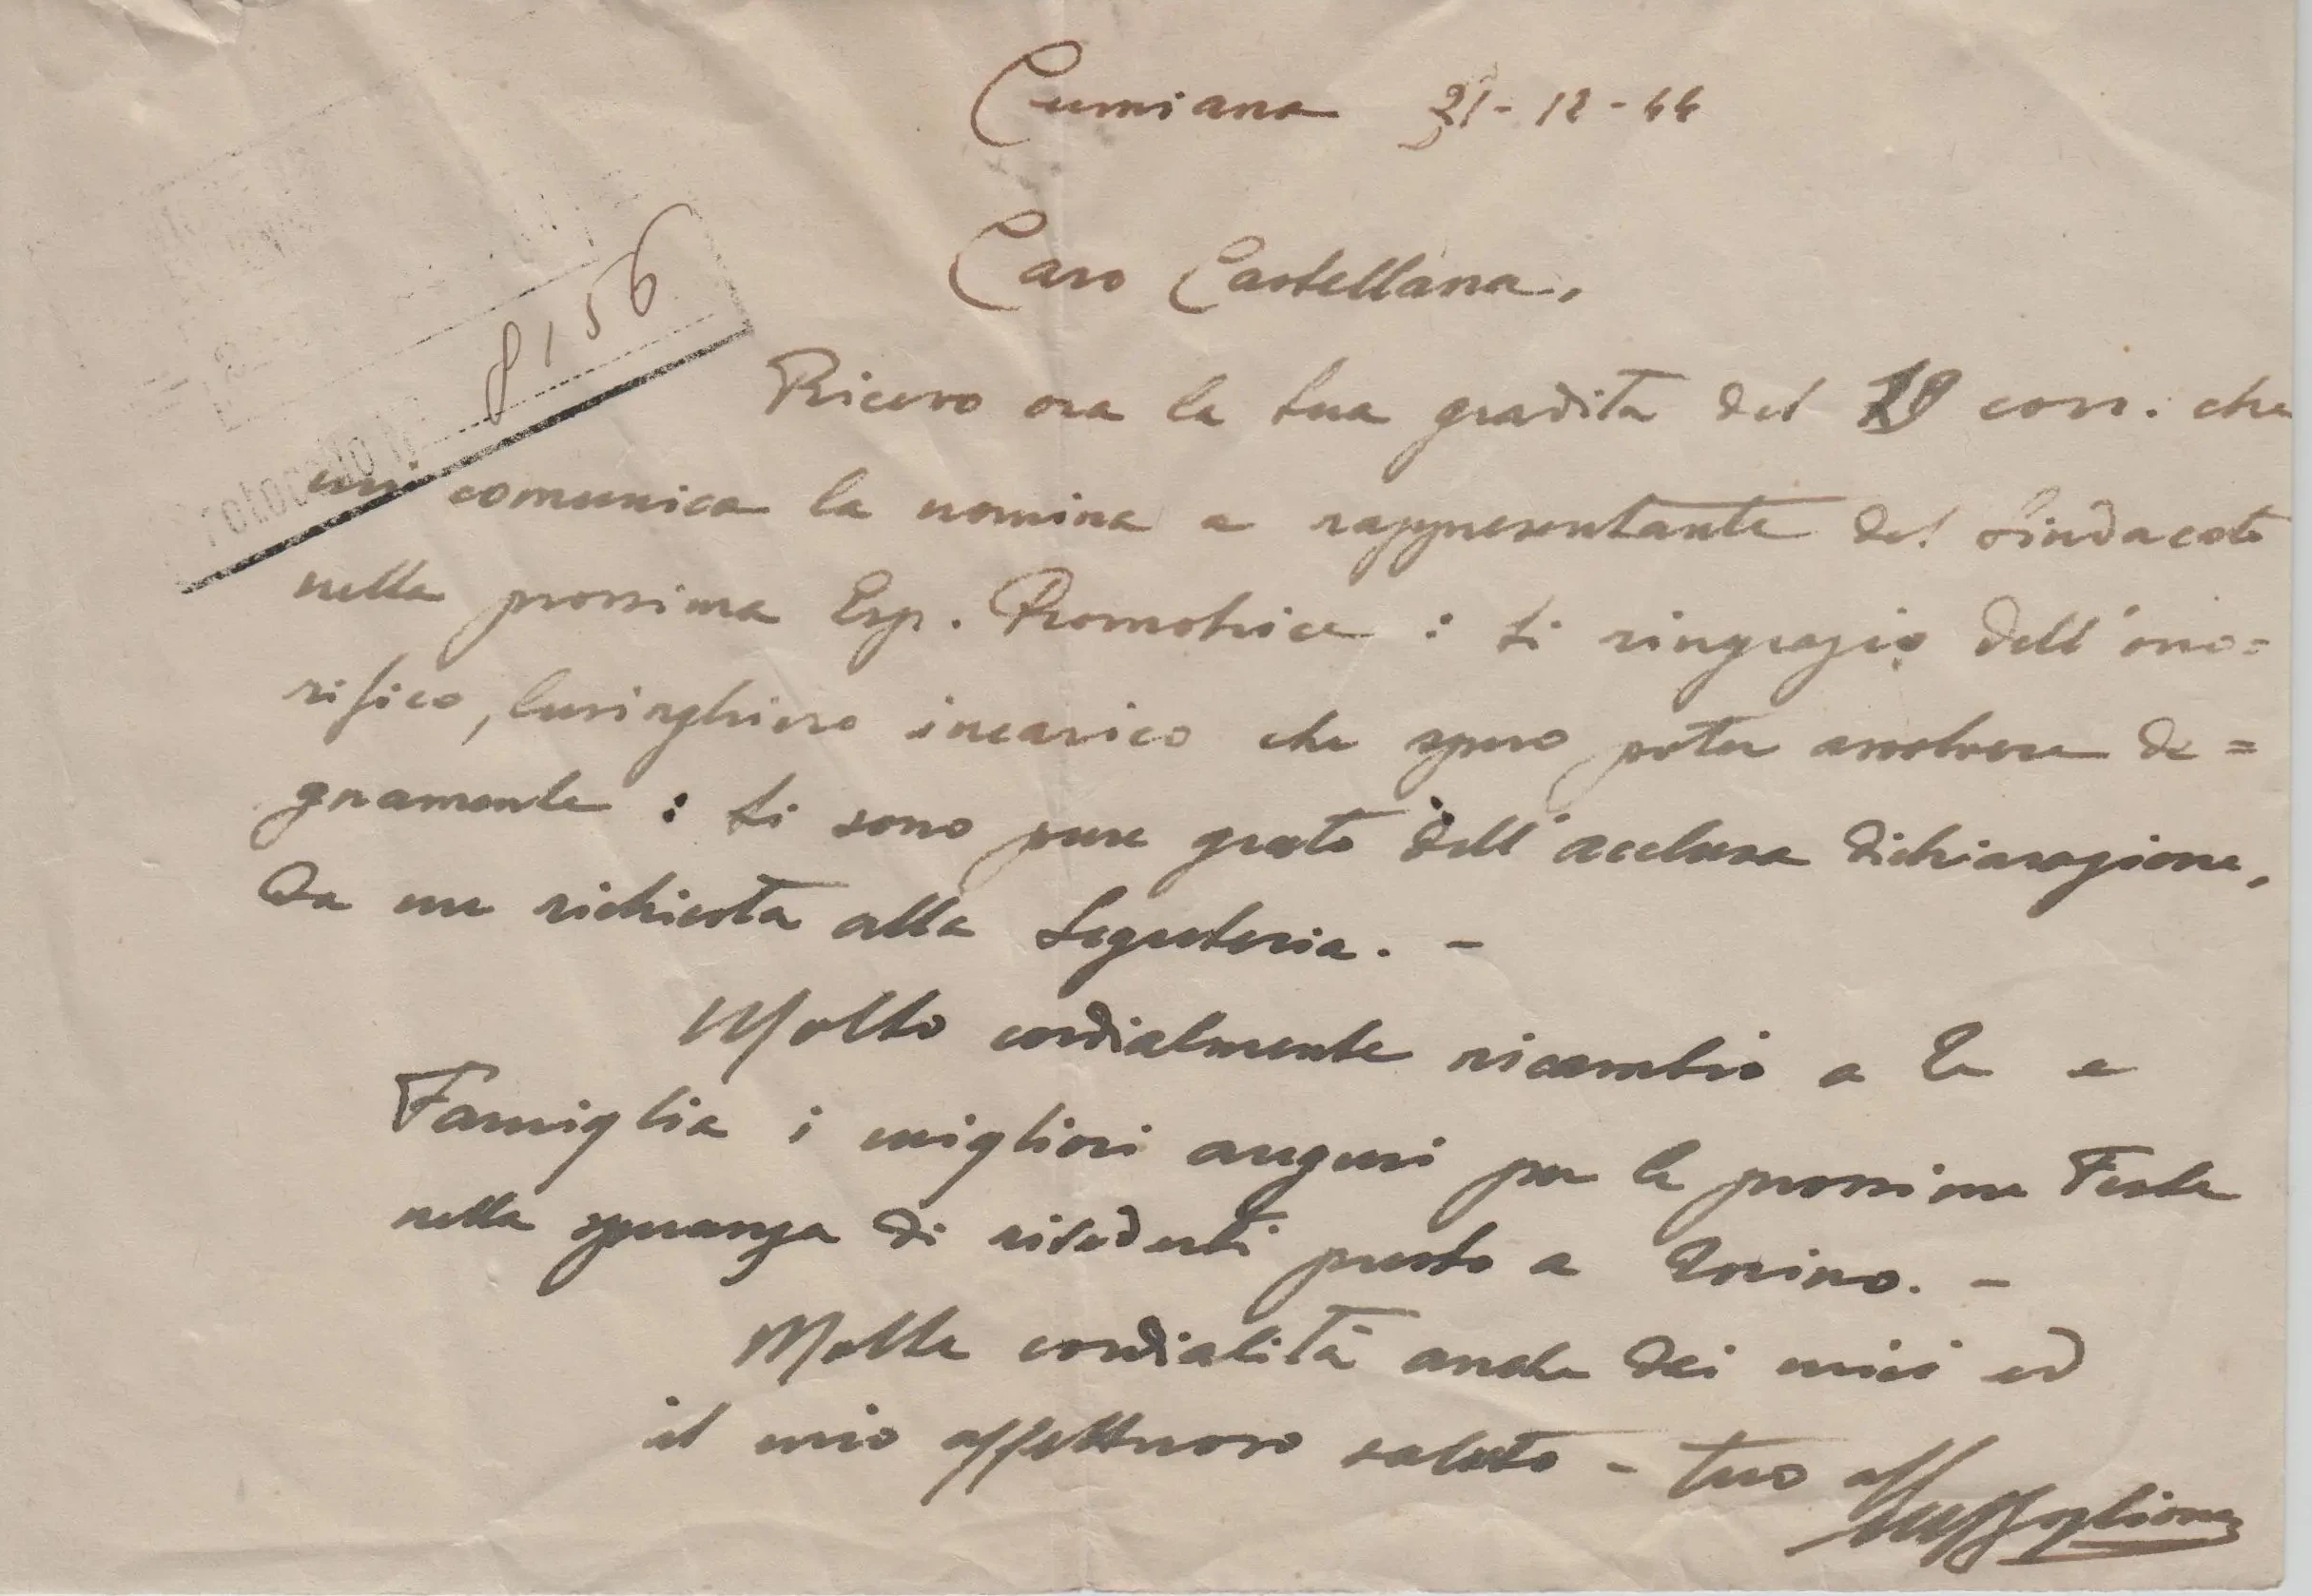 Cumiana 21-12-44
Caro Castellana,
8156
Protocollo N.
Ricevo ora la tua gradita del 19 corr. che
mi comunica la nomina a rappresentante del Sindacato
nella prossima Esp. Promotrice : ti ringrazio dell'ono=
rifico, lusinghiero incarico che spero poter assolvere de=
gnamente : ti sono pure grato dell'acclusa dichiarazione,
da me richiesta alla Segreteria. -
Molto cordialmente ricambio a Te e
Famiglia i migliori auguri per le prossime Feste
nella speranza di rivederti presto a Torino. -
Molte cordialità anche dai miei ed
il mio affettuoso saluto - tuo aff